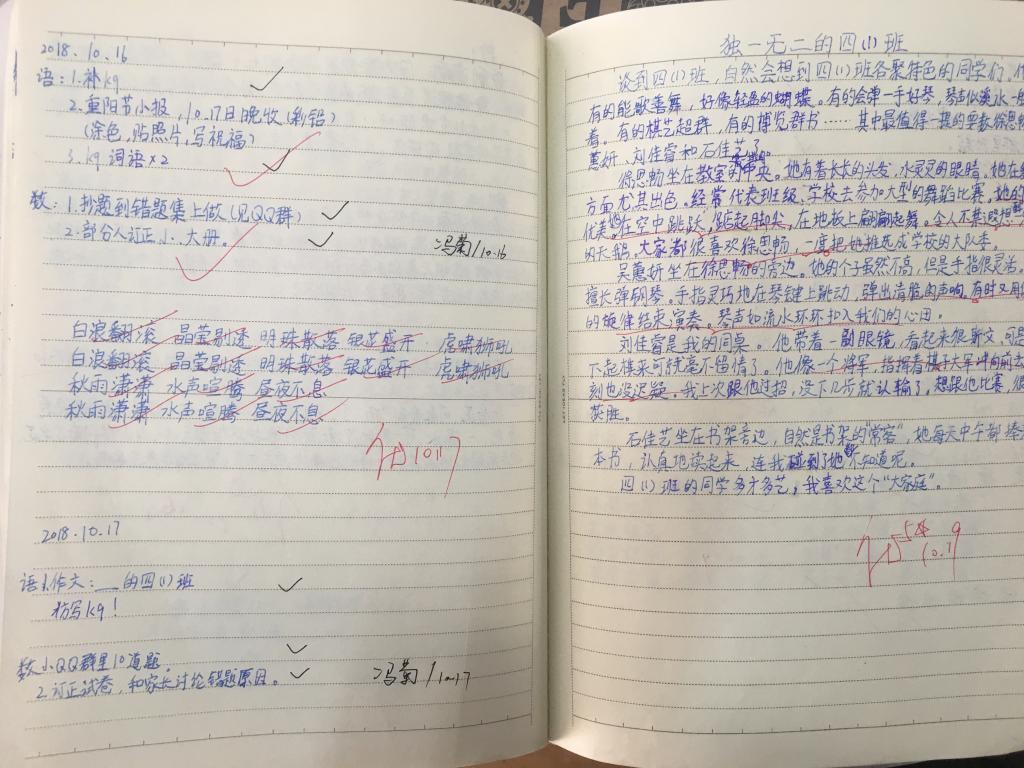 2018.10.16
语:1.补k9
2.重阳节小报,10.17日晚收(彩铅)
(涂色,贴照片,写祝福)
3.k9词语×2
数:1.抄题到错题集上做(见QQ群)
2.部分人订正小、大册。
冯菊/10.16
白浪翻滚 晶莹剔透 明珠散落 银花盛开 虎啸狮吼
白浪翻滚 晶莹剔透 明珠散落 银花盛开 虎啸狮吼
秋雨潇潇 水声喧腾 昼夜不息
秋雨潇潇 水声喧腾 昼夜不息
10.17
2018.10.17
语1.作文:__的四(1)班
仿写k9!
数1.QQ群里10道题。
2.订正试卷,和家长讨论错题原因。
冯菊/10.17
独一无二的四(1)班
谈到四(1)班,自然会想到四(1)班各聚特色的同学们,他
有的能歌善舞,好像轻盈的蝴蝶。有的会弹一手好琴,琴声似溪水一般
着。有的棋艺超群,有的博览群书……其中最值得一提的要数徐思畅
蕙妍、刘佳睿和石佳艺了。
徐思畅坐在教室的中央。她有着长长的头发,水灵灵的眼睛,她在舞
方面尤其出色。经常代表班级、学校去参加大型的舞蹈比赛,她的
优美地在空中跳跃,踮起脚尖,在地板上翩翩起舞。令人不禁遐想
的天鹅。大家都很喜欢徐思畅,一度把她推选成学校的大队委。
吴蕙妍坐在徐思畅的旁边。她的个子虽然不高,但是手指很灵活。
擅长弹钢琴。手指灵巧地在琴键上跳动,弹出清脆的声响。有时又用
的旋律结束演奏。琴声如流水环环扣入我们的心田。
刘佳睿是我的同桌。他带着一副眼镜,看起来很斯文,可是
下起棋来可就毫不留情了。他像一个将军,指挥着棋子大军冲向前去
刻也没迟疑。我上次跟他过招,没下几步就认输了。想跟他比赛,
获胜。
石佳艺坐在书架旁边,自然是书架的“常客”,她每天中午都捧
本书,认真地读起来,连我碰到了她都不知道呢。
四(1)班的同学多才多艺,我喜欢这个“大家庭”。
5☆
10.19